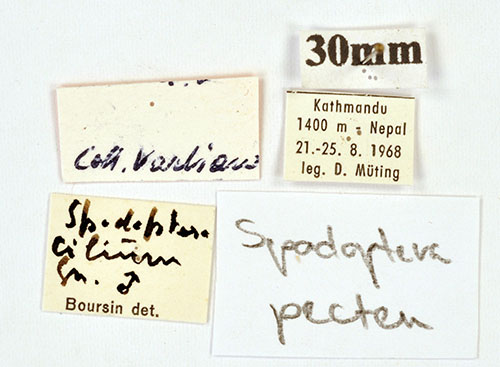 30mm
Coll. Vartian
Kathmandu
1400 m - Nepal
21.-25. 8. 1968
leg. D. Müting
Spodoptera
cilium
Gn. ♂
Boursin det.
Spodoptera
pecten